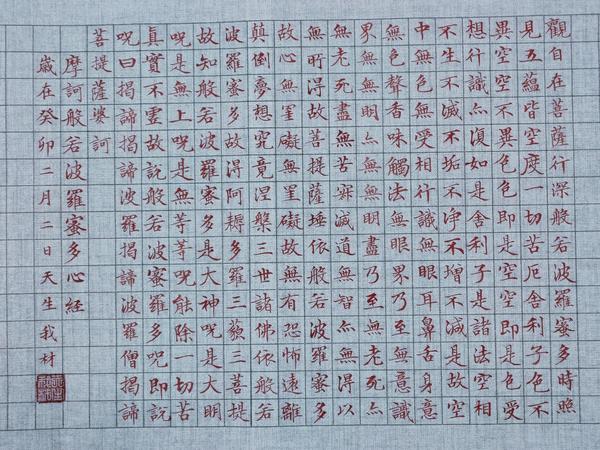 觀自在菩薩行深般若波羅蜜多時照
見五蘊皆空度一切苦厄舍利子色不
異空空不異色色即是空空即是色受
想行識亦復如是舍利子是諸法空相
不生不滅不垢不淨不增不減是故空
中無色無受相行識無眼耳鼻舌身意
無色聲香味觸法無眼界乃至無意識
界無無明亦無無明盡乃至無老死亦
無老死盡無苦寂滅道無智亦無得以
無所得故菩提薩埵依般若波羅蜜多
故心無罣礙無罣礙故無有恐怖遠離
顛倒夢想究竟涅槃三世諸佛依般若
波羅蜜多故得阿耨多羅三藐三菩提
故知般若波羅蜜多是大神呪是大明
呪是無上呪是無等等呪能除一切苦
真實不虛故說般若波羅蜜多呪即說
呪曰揭諦揭諦波羅揭諦波羅僧揭諦
菩提薩婆訶
摩訶般若波羅蜜多心經
歲在癸卯二月二日天生我材